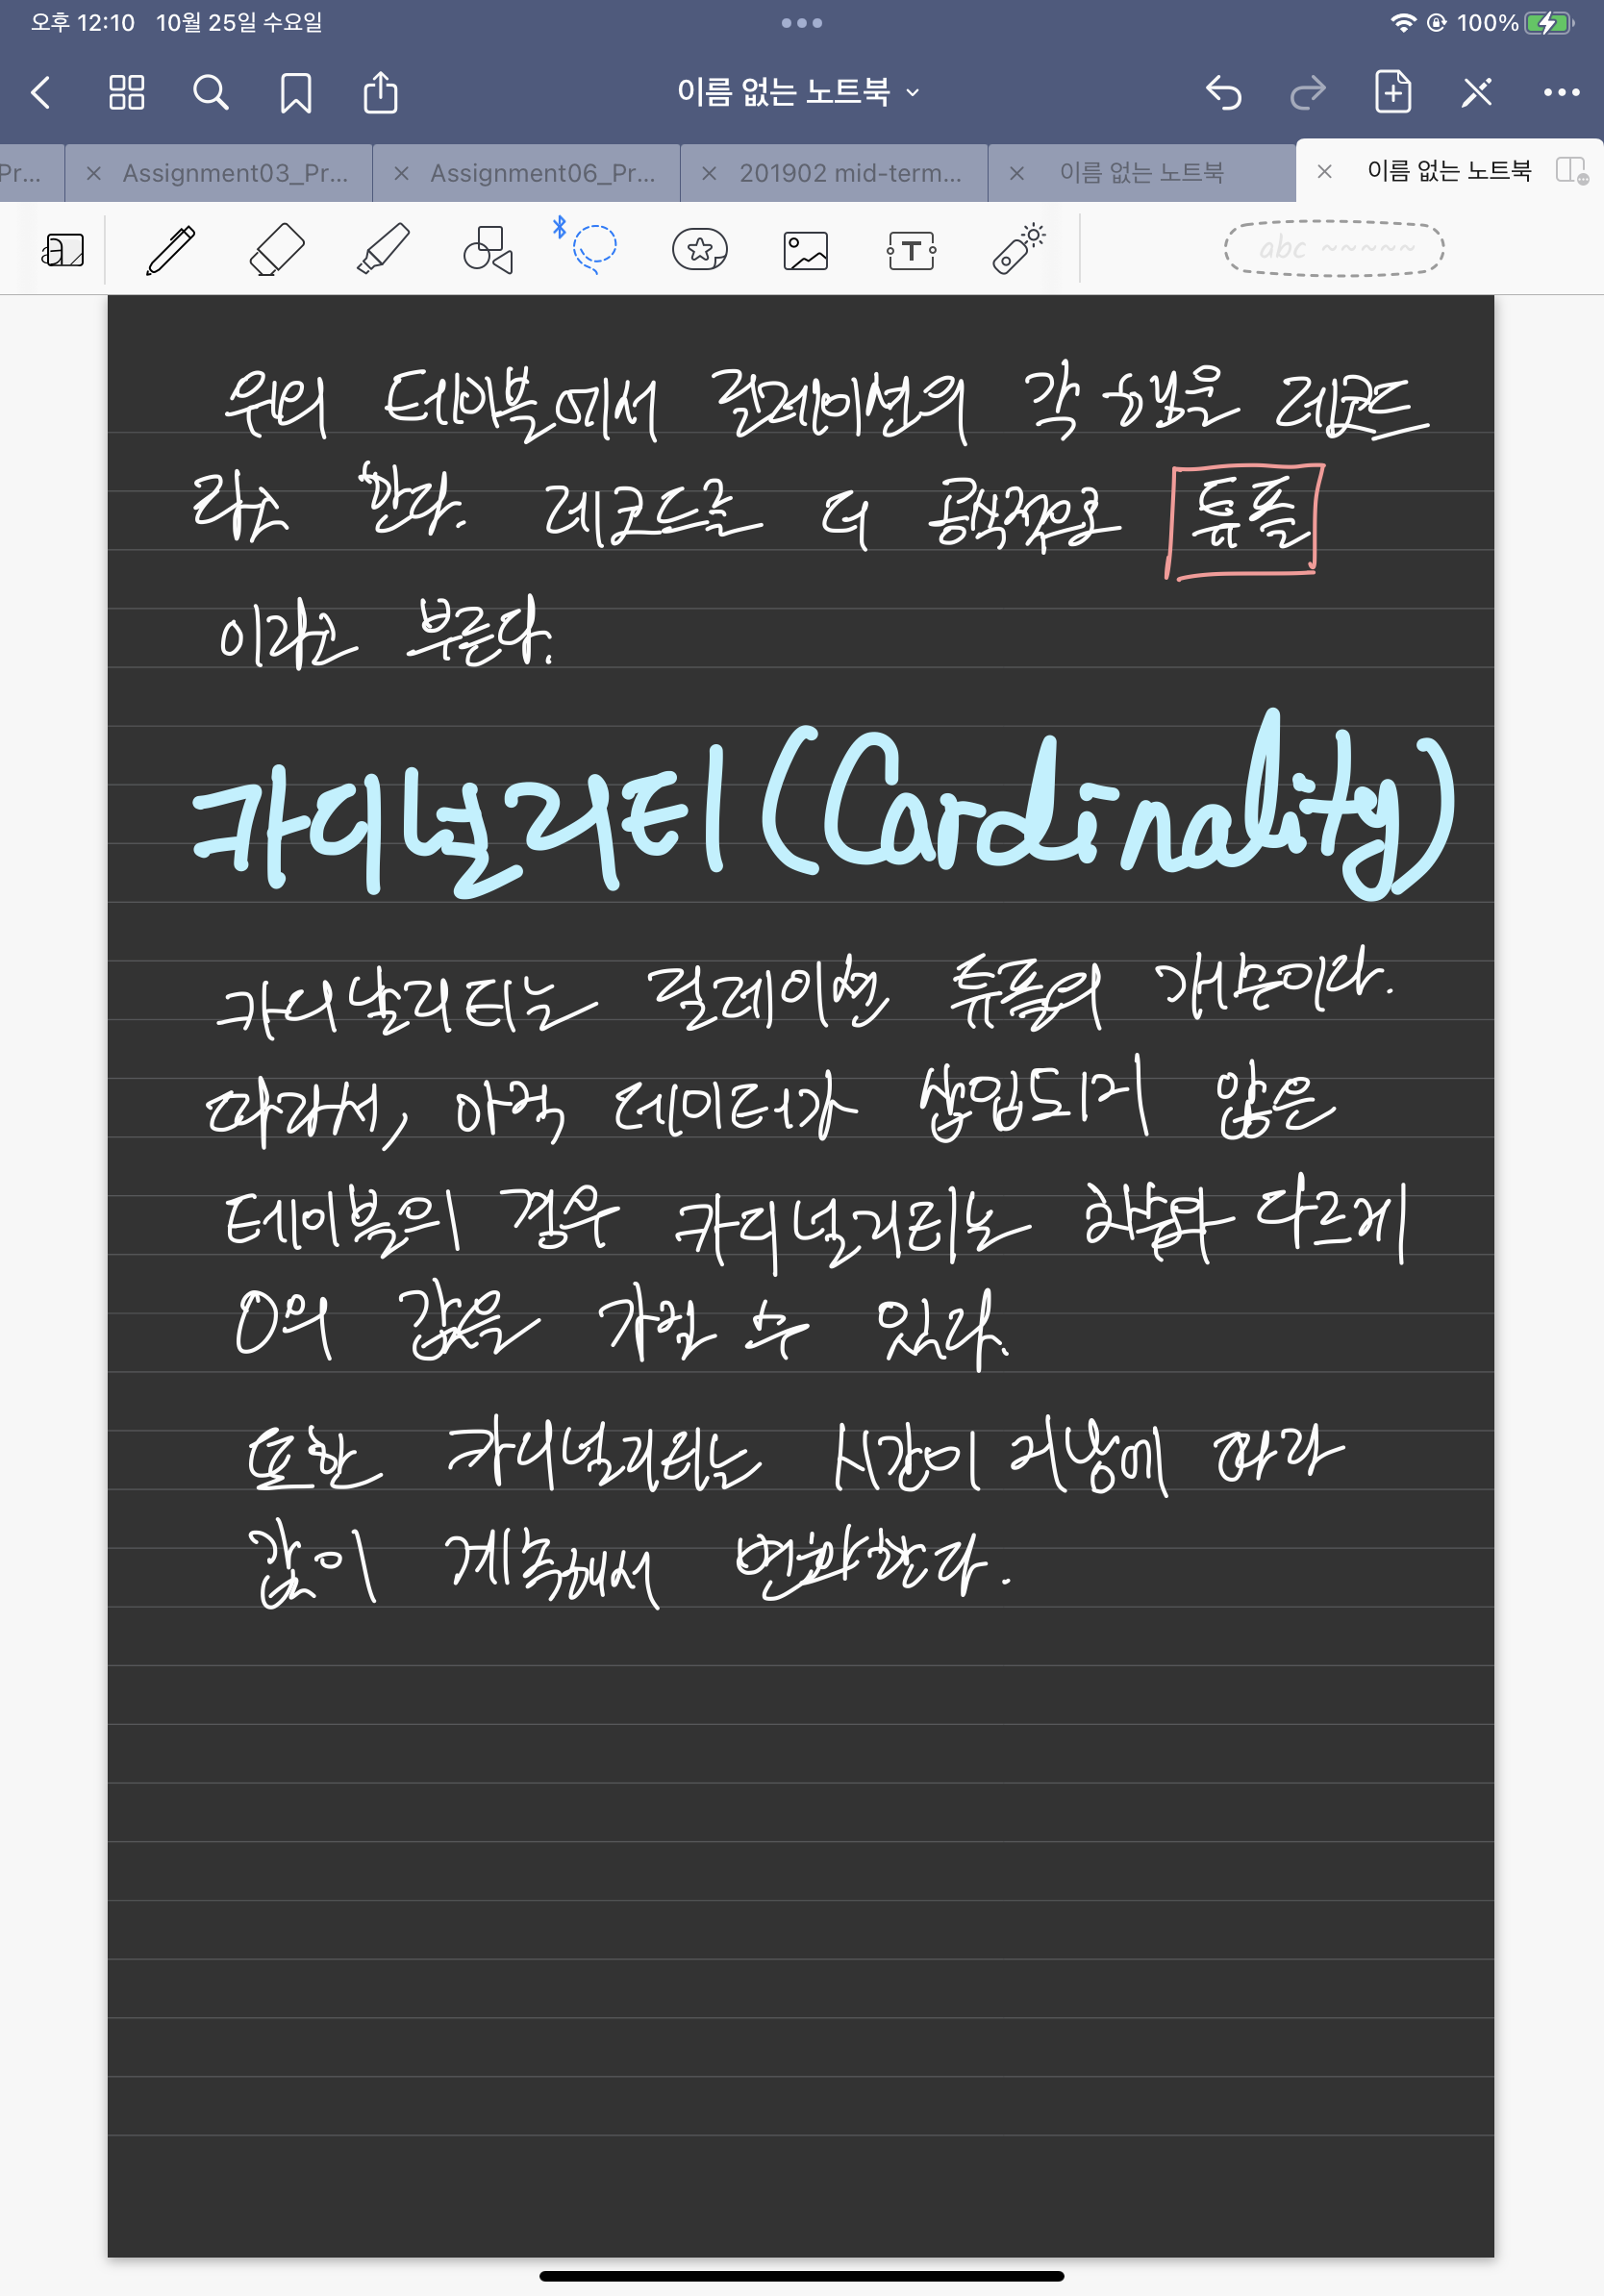 오후 12:10 10월 25일 수요일 100%
이름 없는 노트북
Pr... Assignment03_Pr... Assignment06_Pr... 201902 mid-term... 이름 없는 노트북 이름 없는 노트북
T abc ~~~~~
위의 테이블에서 릴레이션의 각 행을 레코드
라고 한다. 레코드를 더 공식적으로 튜플
이라고 부른다.
카디널리티(Cardinality)
카디날리티는 릴레이션 튜플의 개수이다.
따라서, 아직 데이터가 삽입되지 않은
테이블의 경우 카디널리티는 차수와 다르게
0의 값을 가질 수 있다.
또한 카디널리티는 시간이 지남에 따라
값이 계속해서 변화한다.